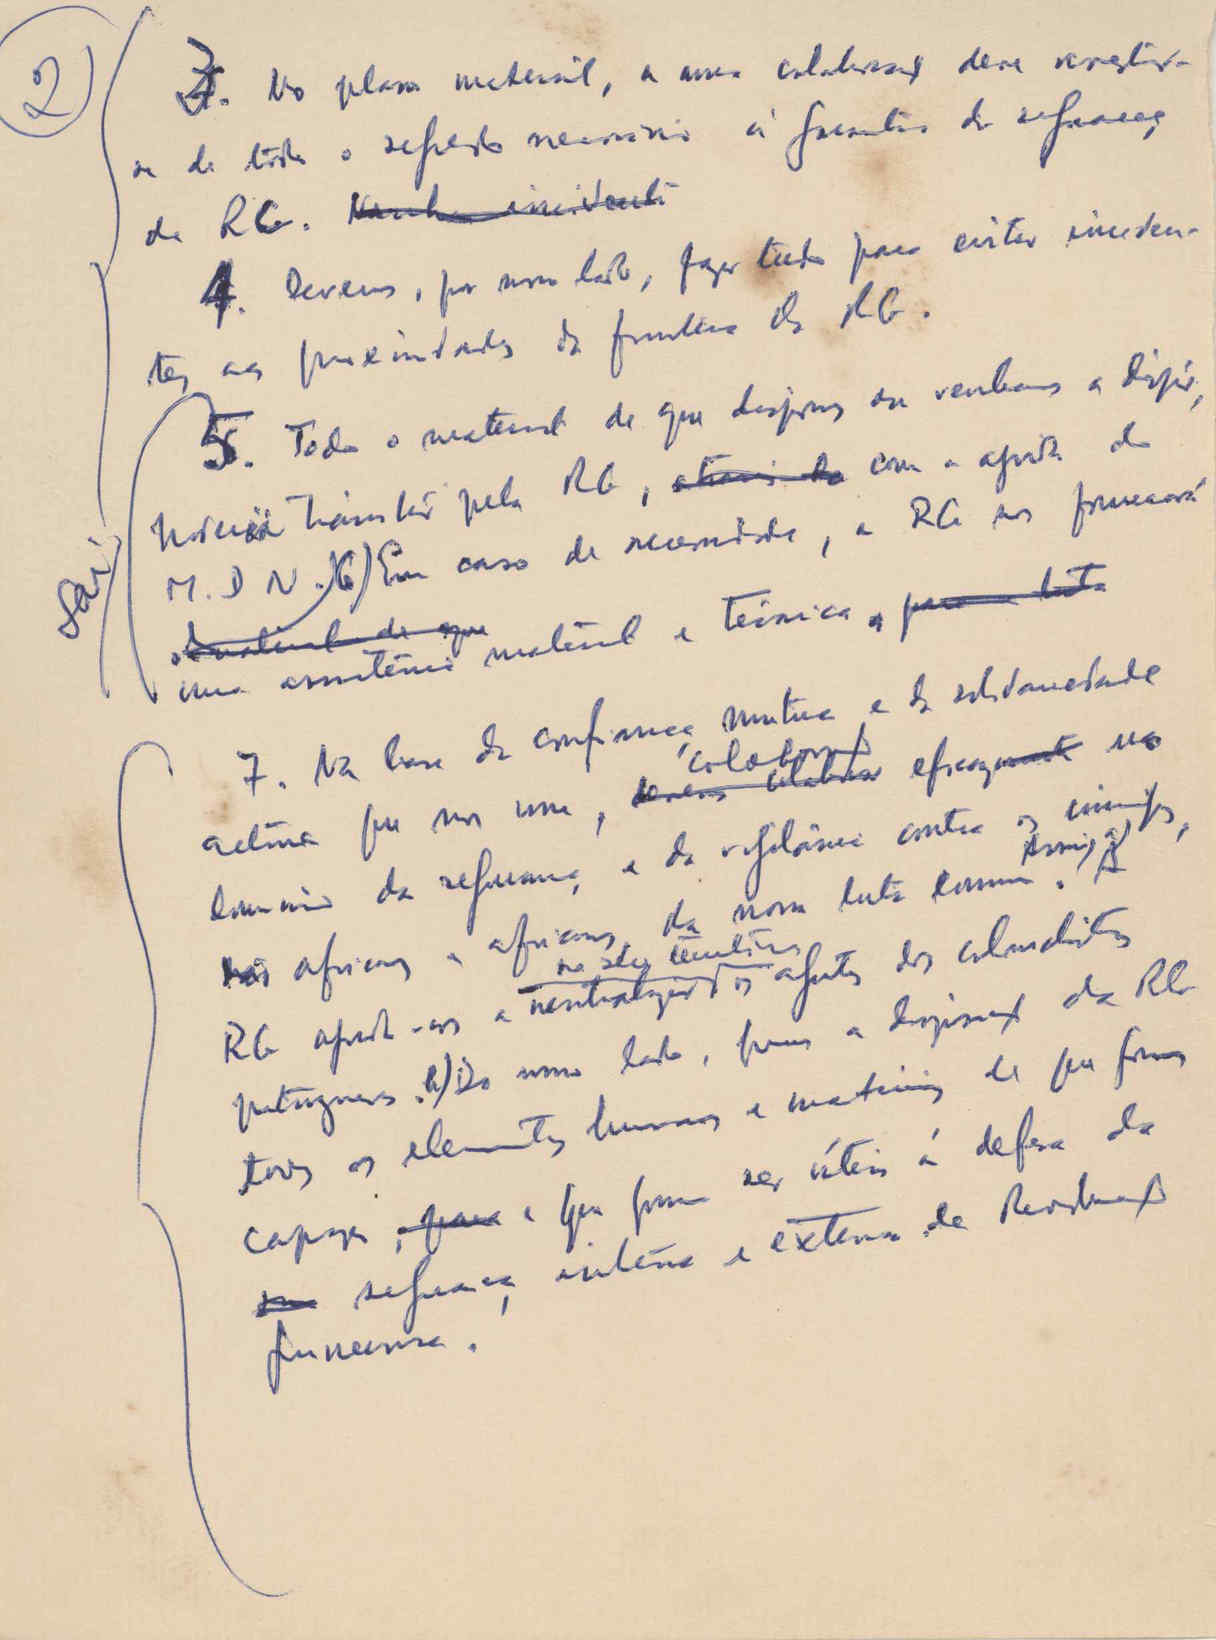 2
3. No plano material, a nossa colaboração deve revestir-
se de todo o segredo necessário à garantia da segurança
da RG. Nenhum incidente
4. Devemos, por nosso lado, fazer tudo para evitar inciden-
tes nas proximidades da fronteira da RG.
5. Todo o material de que dispomos ou venhamos a dispôr,
poderá transitar pela RG, através do com a ajuda do
M.D.N. 6) Em caso de necessidade, a RG nos fornecerá
o material de que
uma assistência material e técnica, para a luta
Sai
7. Na base da confiança mútua e da solidariedade
colaboração
activa que nos une, devemos colaborar eficazmente no
domínio da segurança e da vigilância contra os inimigos,
Assim, a
não africanos e africanos, da nossa luta comum.
no seu território
RG ajuda-nos a neutralizar os agentes dos colonialistas
portugueses. b) Do nosso lado, pomos à disposição da RG
todos os elementos humanos e materiais de que formos
capazes, para e que possam ser úteis à defesa da
sua segurança interna e externa da Revolução
guineense.